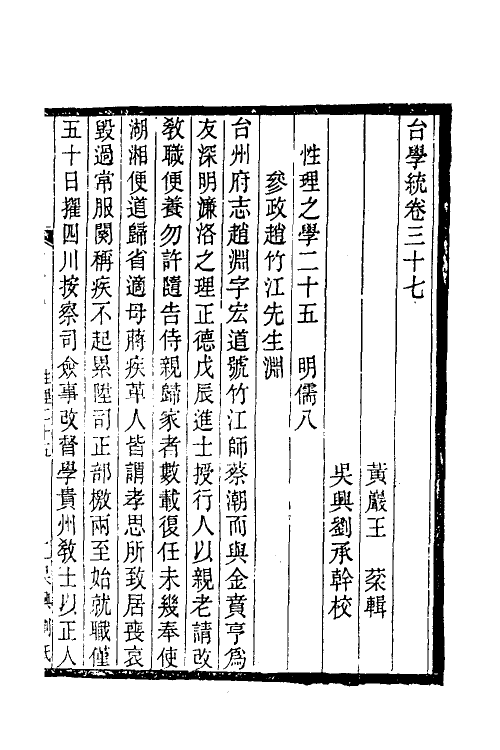 台學統卷三十七
黃巖王　棻輯
吳興劉承幹校
性理之學二十五　明儒八
參政趙竹江先生淵
台州府志趙淵字宏道號竹江師蔡潮而與金賁亨爲
友深明濂洛之理正德戊辰進士授行人以親老請改
敎職便養勿許隨告侍親歸家者數載復任未幾奉使
湖湘便道歸省適母蔣疾革人皆謂孝思所致居喪哀
毀過常服闋稱疾不起累陞司正部檄兩至始就職僅
五十日擢四川按察司僉事改督學貴州敎士以正人